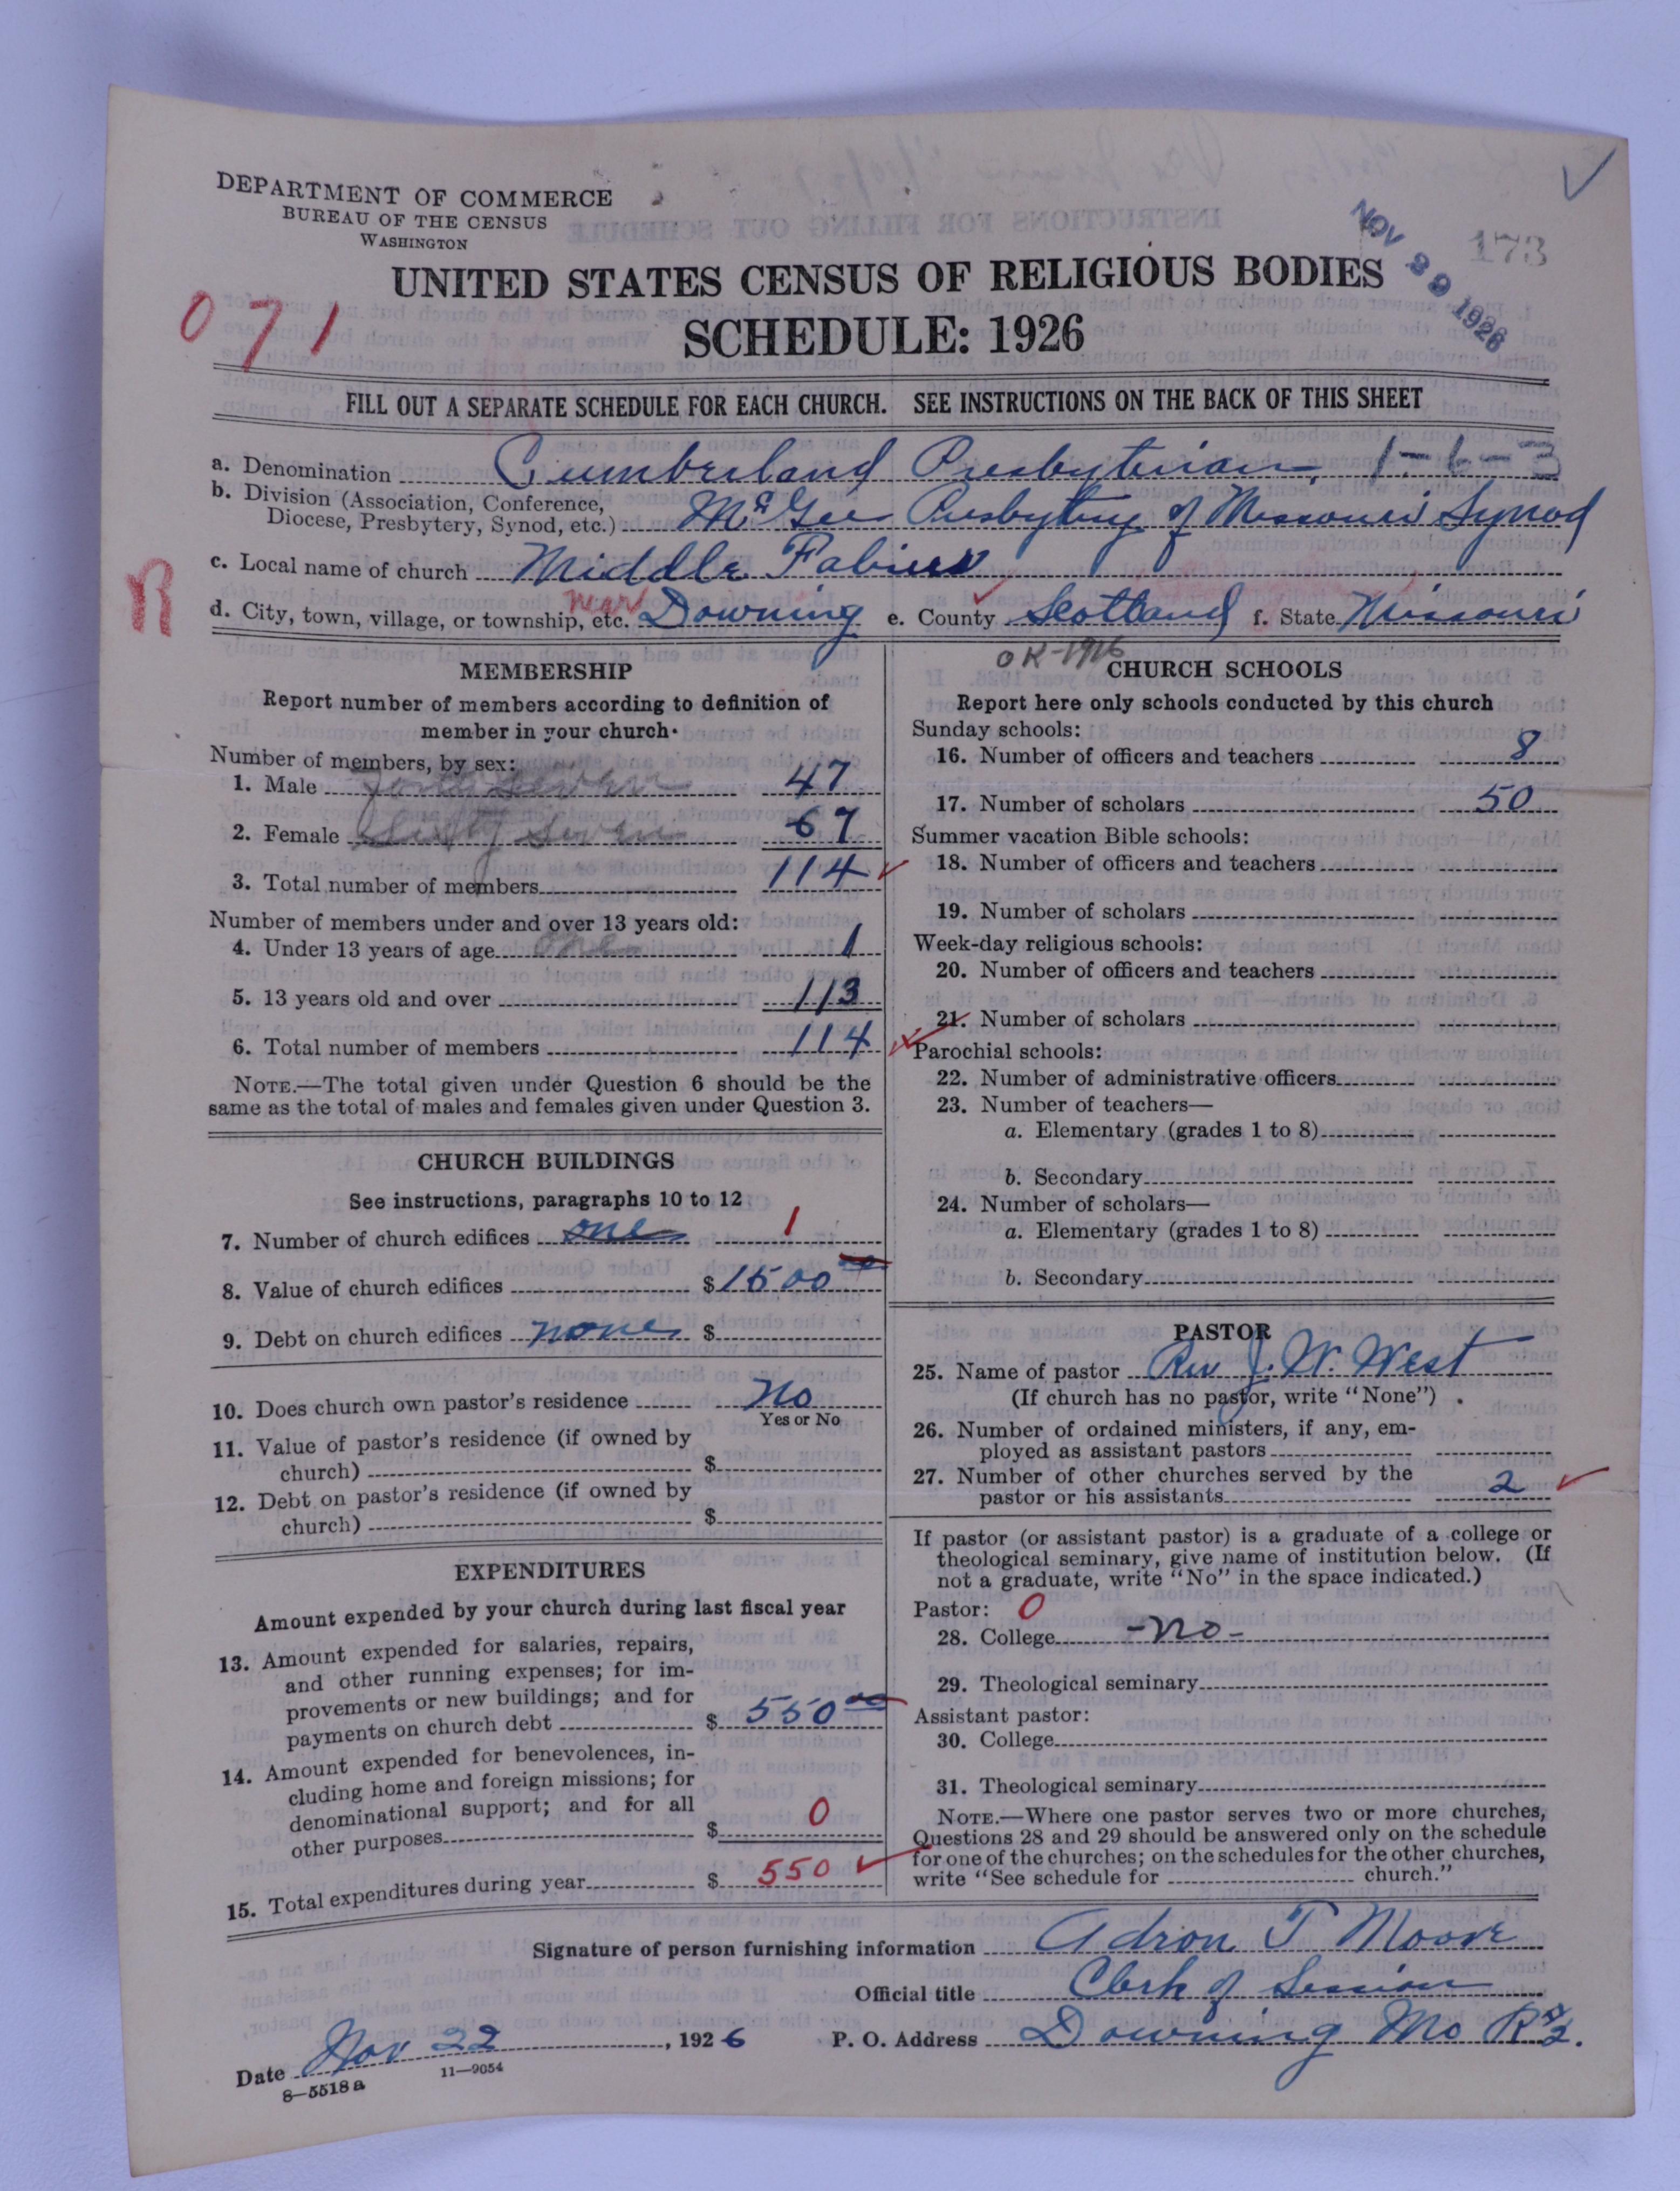 DEPARTMENT OF COMMERCE
BUREAU OF THE CENSUS
WASHINGTON
NOV 29 1926
173
UNITED STATES CENSUS OF RELIGIOUS BODIES
SCHEDULE: 1926
071
FILL OUT A SEPARATE SCHEDULE FOR EACH CHURCH. SEE INSTRUCTIONS ON THE BACK OF THIS SHEET
a. Denomination Cumberland Presbyterian 1-6-3
b. Division (Association, Conference,
Diocese, Presbytery, Synod, etc.) McGee Presbytery of Missouri Synod
c. Local name of church Middle Fabius
R
d. City, town, village, or township, etc. near Downing e. County Scotland f. State Missouri
OK-1916
MEMBERSHIP
Report number of members according to definition of
member in your church.
Number of members, by sex:
1. Male Forty Seven 47
2. Female Sixty Seven 67
3. Total number of members 114
Number of members under and over 13 years old:
4. Under 13 years of age one 1
5. 13 years old and over 113
6. Total number of members 114
NOTE.—The total given under Question 6 should be the
same as the total of males and females given under Question 3.
CHURCH BUILDINGS
See instructions, paragraphs 10 to 12
7. Number of church edifices one 1
8. Value of church edifices $1500 00
9. Debt on church edifices none $
10. Does church own pastor's residence No
Yes or No
11. Value of pastor's residence (if owned by
church) $
12. Debt on pastor's residence (if owned by
church) $
EXPENDITURES
Amount expended by your church during last fiscal year
13. Amount expended for salaries, repairs,
and other running expenses; for im-
provements or new buildings; and for
payments on church debt $ 550 00
14. Amount expended for benevolences, in-
cluding home and foreign missions; for
denominational support; and for all
other purposes $ 0
15. Total expenditures during year $ 550
CHURCH SCHOOLS
Report here only schools conducted by this church
Sunday schools:
16. Number of officers and teachers 8
17. Number of scholars 50
Summer vacation Bible schools:
18. Number of officers and teachers
19. Number of scholars
Week-day religious schools:
20. Number of officers and teachers
21. Number of scholars
Parochial schools:
22. Number of administrative officers
23. Number of teachers—
a. Elementary (grades 1 to 8)
b. Secondary
24. Number of scholars—
a. Elementary (grades 1 to 8)
b. Secondary
PASTOR
25. Name of pastor Rev J. W. West
(If church has no pastor, write "None")
26. Number of ordained ministers, if any, em-
ployed as assistant pastors
27. Number of other churches served by the
pastor or his assistants 2
If pastor (or assistant pastor) is a graduate of a college or
theological seminary, give name of institution below. (If
not a graduate, write "No" in the space indicated.)
Pastor: 0
28. College -no-
29. Theological seminary
Assistant pastor:
30. College
31. Theological seminary
NOTE.—Where one pastor serves two or more churches,
Questions 28 and 29 should be answered only on the schedule
for one of the churches; on the schedules for the other churches,
write "See schedule for church."
Signature of person furnishing information Adron T Moore
Official title Clerk of Session
Date Nov 22, 1926 P. O. Address Downing Mo R#2.
8—5518a 11—9054